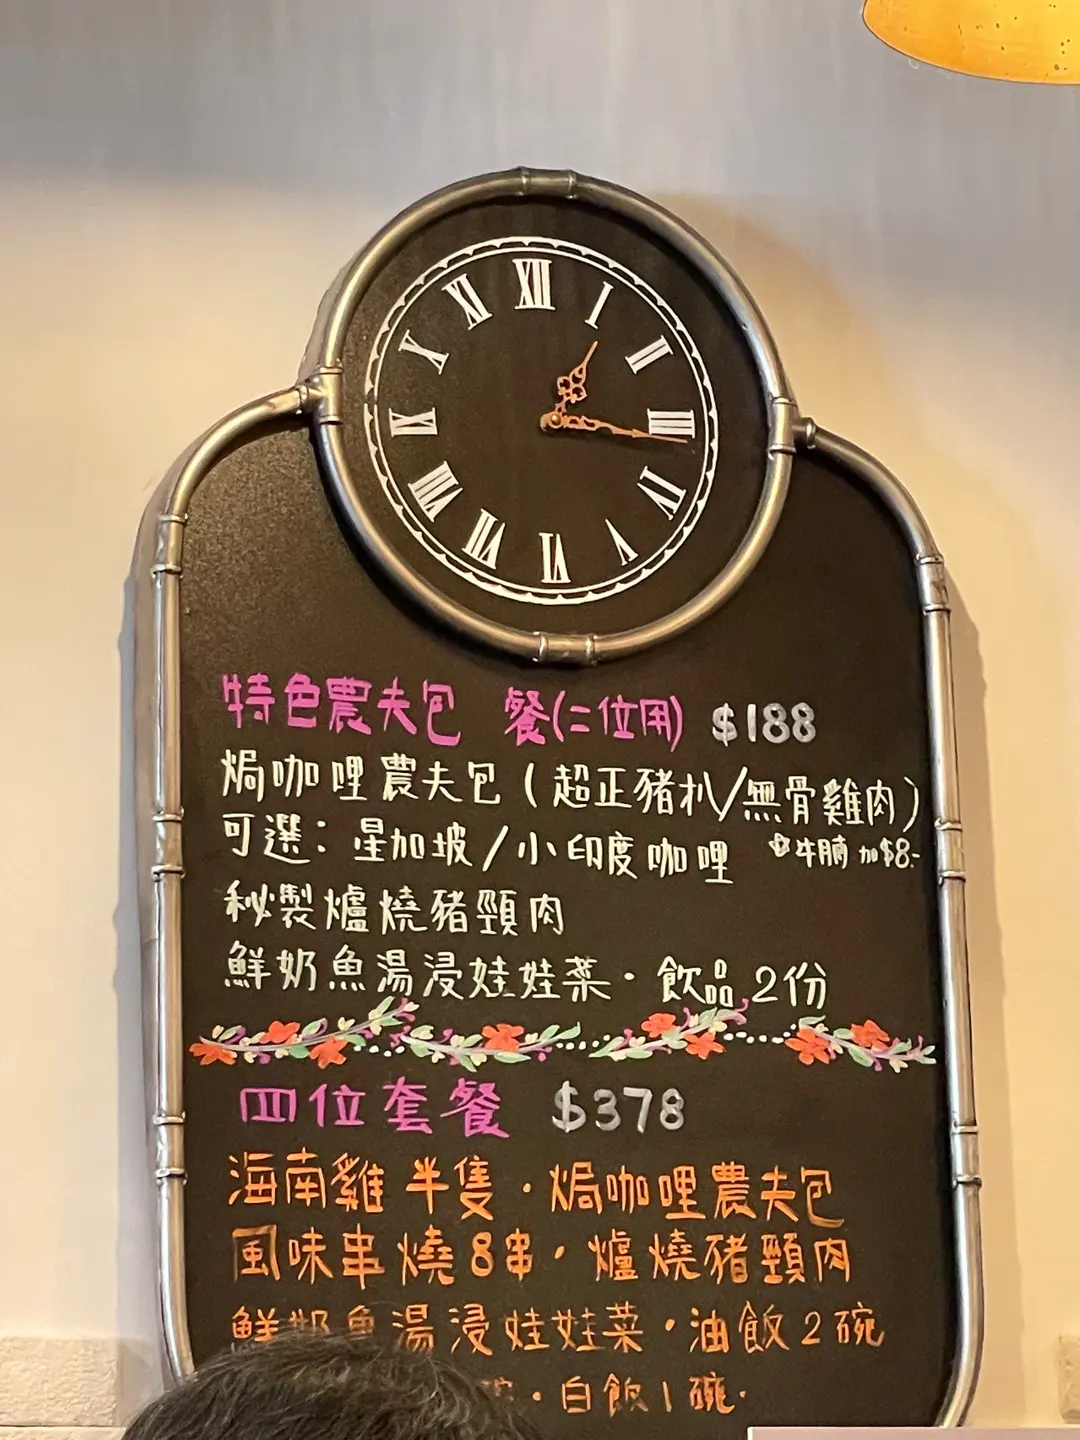 XII
I
II
III
IV
V
VI
VII
VIII
IX
X
XI
特色農夫包 餐(二位用) $188
焗咖哩農夫包(超正豬扒/無骨雞肉)
可選：星加坡/小印度咖哩 牛腩加$8.-
秘製爐燒豬頸肉
鮮奶魚湯浸娃娃菜·飲品2份
四位套餐 $378
海南雞半隻·焗咖哩農夫包
風味串燒8串·爐燒豬頸肉
鮮奶魚湯浸娃娃菜·油飯2碗
·白飯1碗·